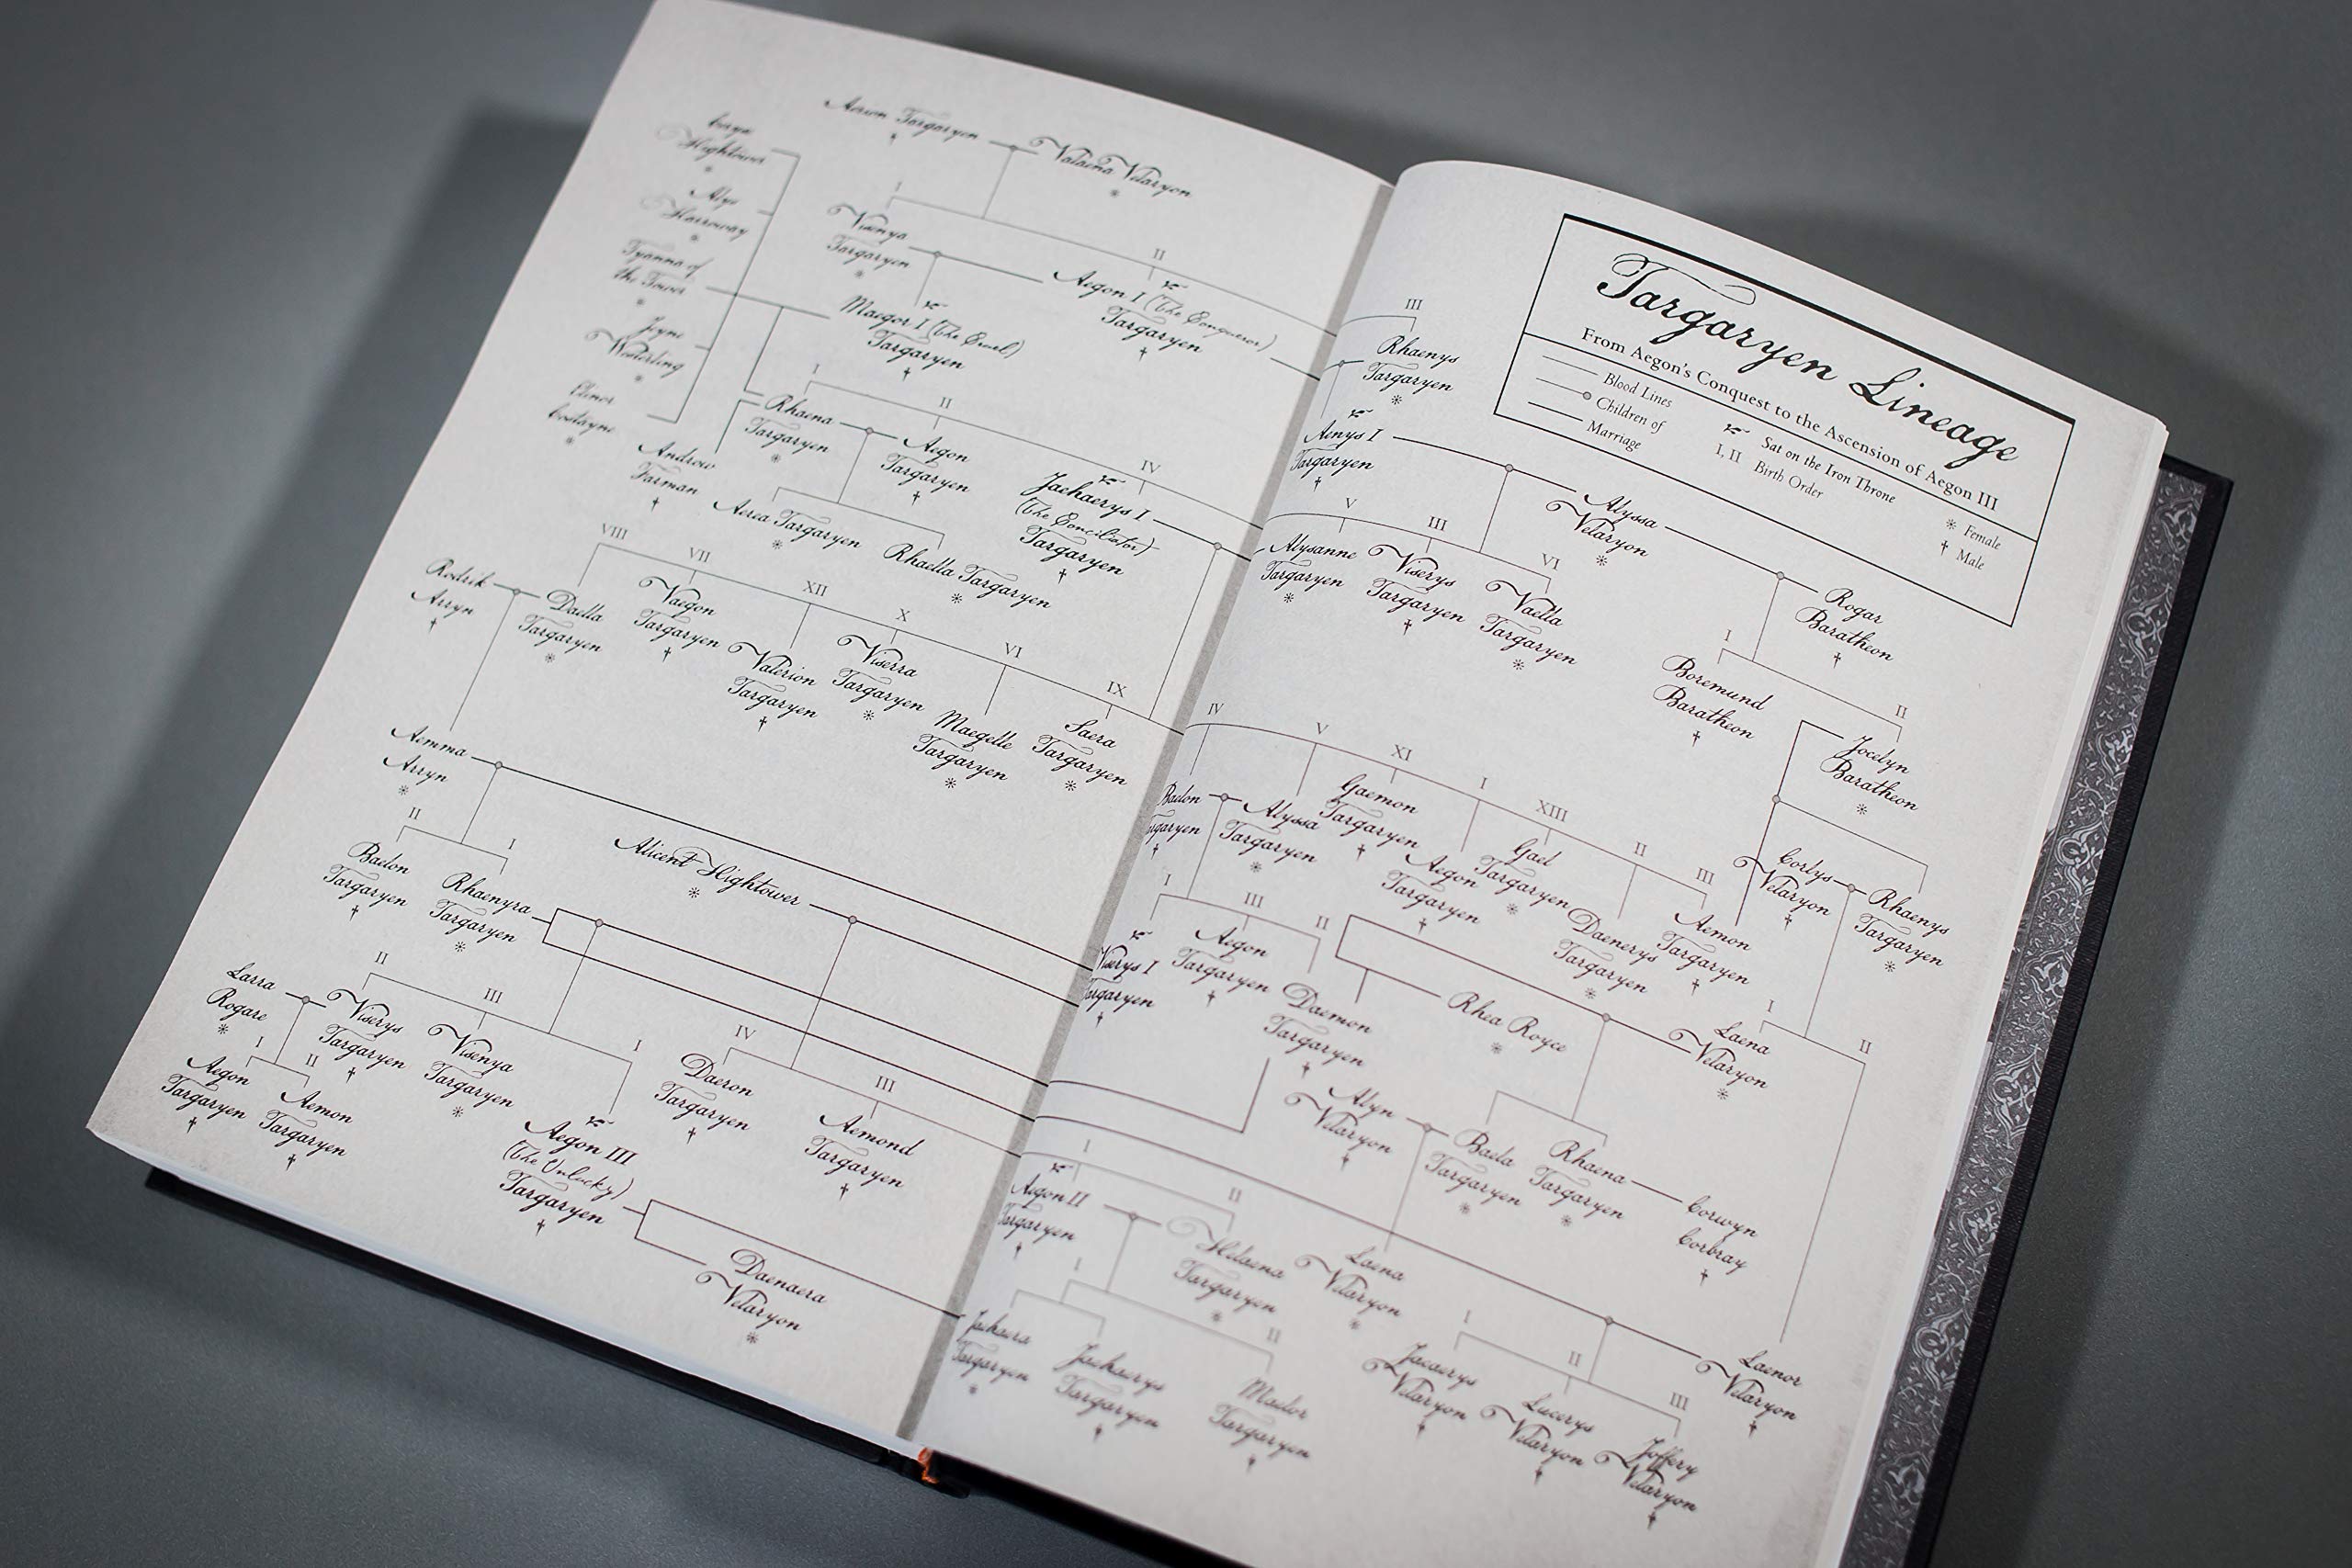 Aerion Targaryen
Valaena Velaryon
Ceryse
Hightower
Alys
Harroway
Tyanna of
the Tower
Jeyne
Westerling
Elinor
Costayne
I
II
Visenya
Targaryen
Aegon I (The Conqueror)
Targaryen
Maegor I (The Cruel)
Targaryen
I
II
IV
Rhaena
Targaryen
Aegon
Targaryen
Andrew
Farman
Jaehaerys I
(The Conciliator)
Targaryen
Aerea Targaryen
Rhaella Targaryen
VIII
VII
XII
X
VI
IX
Rodrik
Arryn
Daella
Targaryen
Vaegon
Targaryen
Valerion
Targaryen
Viserra
Targaryen
Maegelle
Targaryen
Saera
Targaryen
Aemma
Arryn
II
I
Baelon
Targaryen
Rhaenyra
Targaryen
Alicent Hightower
II
III
I
IV
III
Larra
Rogare
Viserys
Targaryen
Visenya
Targaryen
I
II
Aegon
Targaryen
Aemon
Targaryen
Aegon III
(The Unlucky)
Targaryen
Daeron
Targaryen
Aemond
Targaryen
Daenaera
Velaryon
Targaryen Lineage
From Aegon's Conquest to the Ascension of Aegon III
Blood Lines
Children of
Marriage
Sat on the Iron Throne
I, II Birth Order
Female
Male
III
Rhaenys
Targaryen
Aenys I
Targaryen
Alyssa
Velaryon
Rogar
Baratheon
V
III
VI
Alysanne
Targaryen
Viserys
Targaryen
Vaella
Targaryen
I
II
Boremund
Baratheon
Jocelyn
Baratheon
IV
V
XI
I
XIII
II
III
Baelon
Targaryen
Alyssa
Targaryen
Gaemon
Targaryen
Aegon
Targaryen
Gael
Targaryen
Daenerys
Targaryen
Aemon
Targaryen
Corlys
Velaryon
Rhaenys
Targaryen
I
III
II
Viserys I
Targaryen
Aegon
Targaryen
Daemon
Targaryen
Rhea Royce
I
II
Laena
Velaryon
Alyn
Velaryon
Baela
Targaryen
Rhaena
Targaryen
Corwyn
Corbray
I
II
Aegon II
Targaryen
Helaena
Targaryen
Laena
Velaryon
I
II
Jaehaera
Targaryen
Jaehaerys
Targaryen
Maelor
Targaryen
I
II
III
Jacaerys
Velaryon
Lucerys
Velaryon
Joffery
Velaryon
Laenor
Velaryon